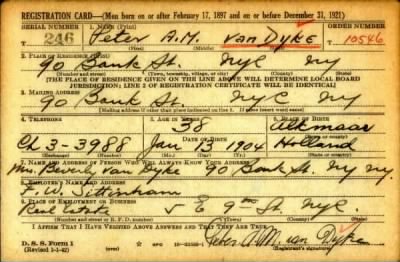 REGISTRATION CARD—(Men born on or after February 17, 1897 and on or before December 31, 1921)
SERIAL NUMBER 1. NAME (Print) ORDER NUMBER
246 Peter A.M. Van Dyke 10546
(First) (Middle) (Last)
2. PLACE OF RESIDENCE (Print)
90 Bank St. NYC NY
(Number and street) (Town, township, village, or city) (County) (State)
[THE PLACE OF RESIDENCE GIVEN ON THE LINE ABOVE WILL DETERMINE LOCAL BOARD
JURISDICTION; LINE 2 OF REGISTRATION CERTIFICATE WILL BE IDENTICAL]
3. MAILING ADDRESS
90 Bank St. NYC NY
[Mailing address if other than place indicated on line 2. If same insert word same]
4. TELEPHONE 5. AGE IN YEARS 6. PLACE OF BIRTH
38 Alkmaar
DATE OF BIRTH (Town or county)
Ch 3-3988 Jan 13 1904 Holland
(Exchange) (Number) (Mo.) (Day) (Yr.) (State or country)
7. NAME AND ADDRESS OF PERSON WHO WILL ALWAYS KNOW YOUR ADDRESS
Mrs. Beverly Van Dyke 90 Bank St NY NY
8. EMPLOYER'S NAME AND ADDRESS
F. W. Sittenham
9. PLACE OF EMPLOYMENT OR BUSINESS
Real Estate 5 E 9th St. NYC.
(Number and street or R. F. D. number) (Town) (County) (State)
I AFFIRM THAT I HAVE VERIFIED ABOVE ANSWERS AND THAT THEY ARE TRUE.
D. S. S. Form 1
(Revised 1-1-42) Peter A.M. van Dyke
(Registrant's signature)